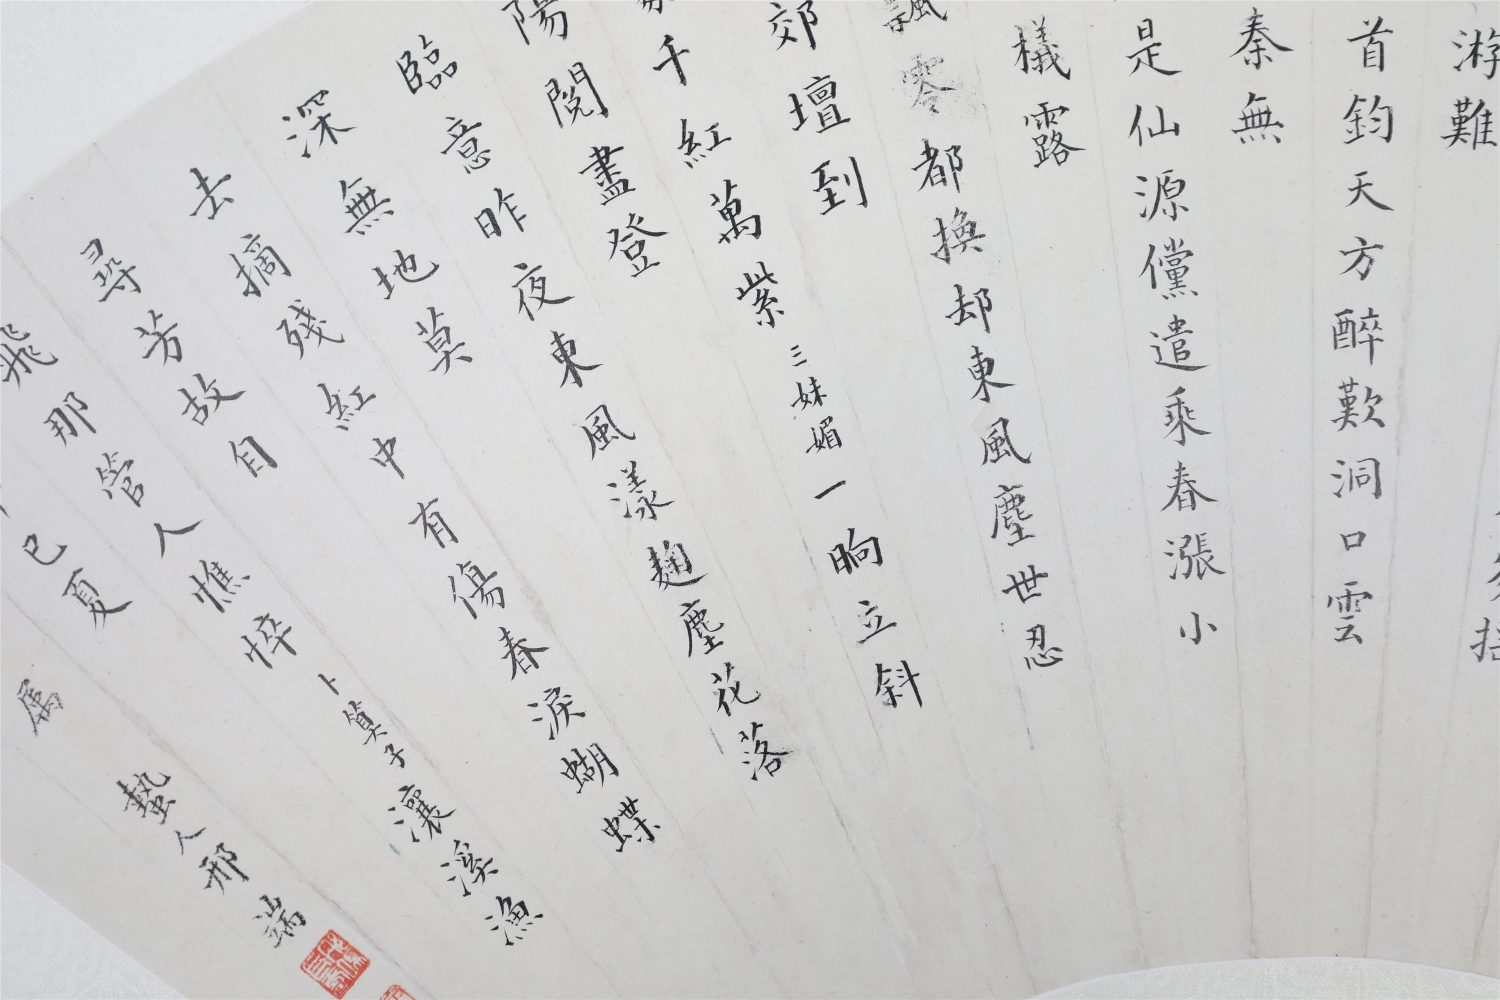 游難
首鈞天方醉歎洞口雲
秦無
是仙源儻遣乘春漲小
檥露
飄零都換却東風塵世忍
郊壇到
千紅萬紫三妹媚一晌立斜
陽閱盡登
臨意昨夜東風漾麴塵花落
深無地莫
去摘殘紅中有傷春淚蝴蝶
尋芳故自
飛那管人憔悴卜算子瀼溪漁
巳夏
属
蟄人邢端